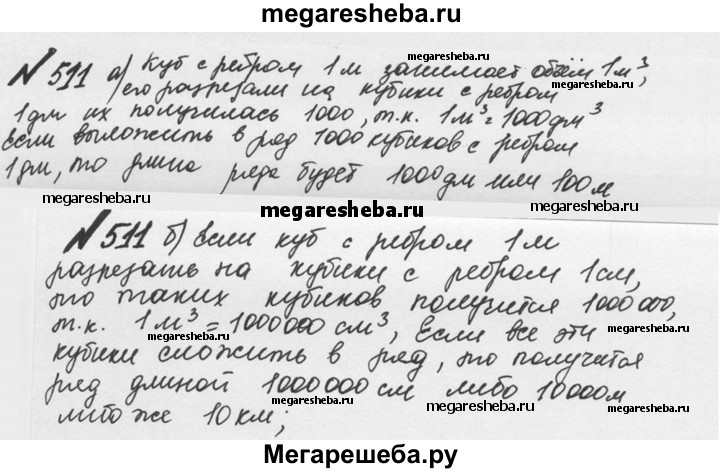 megaresheba.ru
№ 511 а) Куб с ребром 1 м занимает объём 1 м³,
megaresheba.ru
его разрезали на кубики с ребром
1 дм их получилась 1000, т.к. 1 м³ = 1000 дм³
megaresheba.ru
если выложить в ряд 1000 кубиков с ребром
1 дм, то длина ряда будет 1000 дм или 100 м
megaresheba.ru megaresheba.ru
megaresheba.ru
№ 511 б) Если куб с ребром 1 м
megaresheba.ru
разрезать на кубики с ребром 1 см,
то таких кубиков получится 1000 000,
т.к. 1 м³ = 1000 000 см³, Если все эти
megaresheba.ru megaresheba.ru
кубики сложить в ряд, то получится
ряд длиной 1000 000 см либо 10 000 м
megaresheba.ru
либо же 10 км;
megaresheba.ru
Мегарешеба.ру